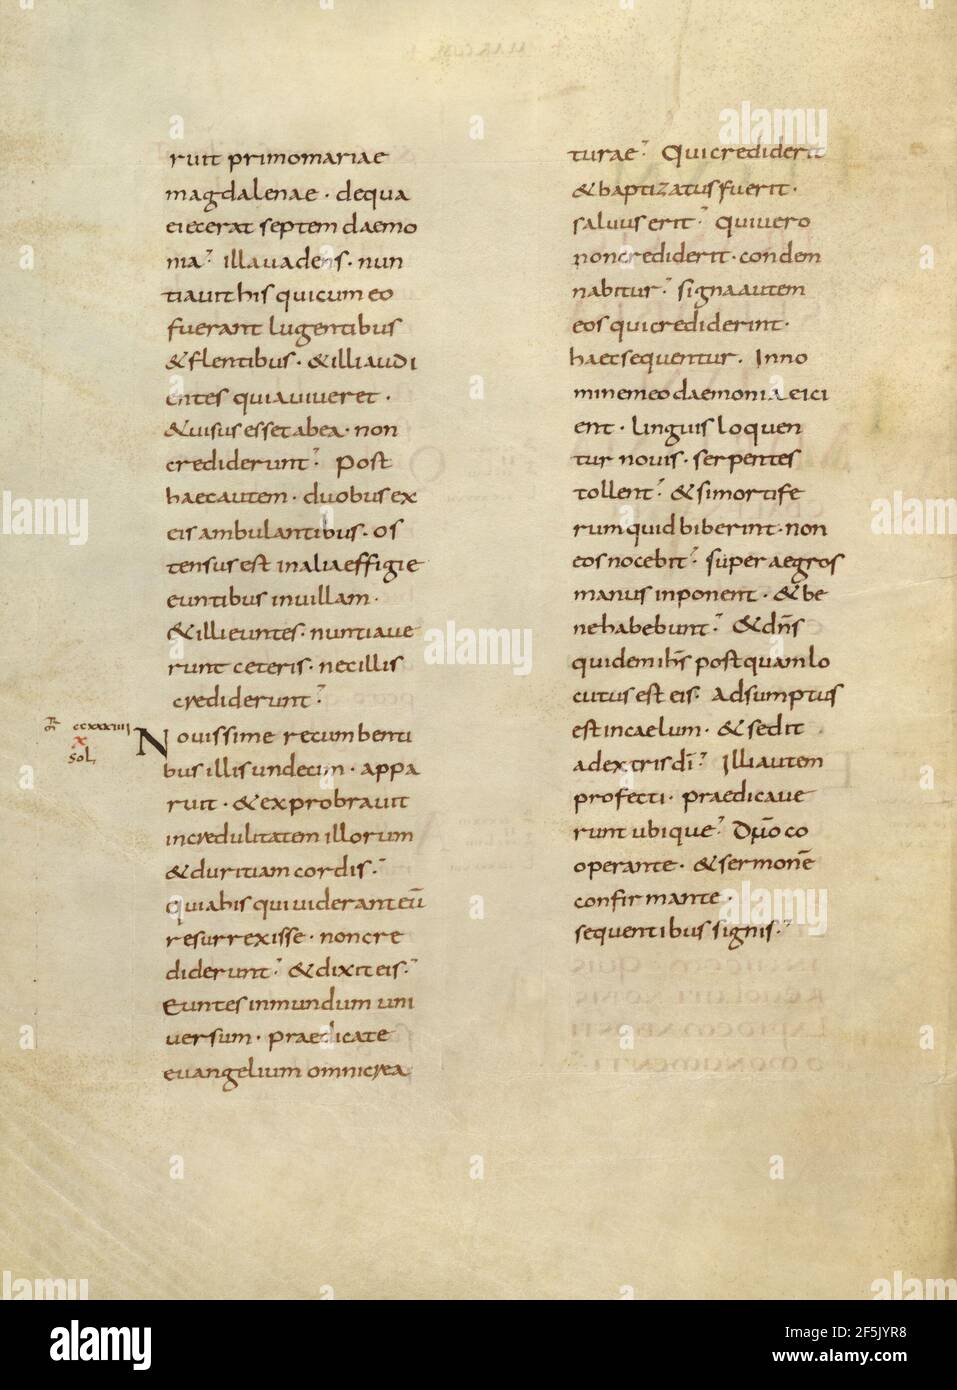 ruit primomariae
magdalenae · dequa
eiecerat septem daemo
nia. Illa vadens · nun
tiavit his qui cum eo
fuerant lugentibus
& flentibus · & illi audi
entes quia viveret ·
& visus esset ab ea · non
crediderunt. Post
haec autem · duobus ex
eis ambulantibus · os
tensus est in alia effigie
euntibus in villam ·
& illi euntes · nuntiave
runt ceteris · nec illis
crediderunt.
ccxxxiiii
x
sol,
Novissime recumbenti
bus illis undecim · appa
ruit · & exprobravit
incredulitatem illorum
& duritiam cordis.
Quia his qui viderant eū
resurrexisse · non cre
diderunt. & dixit eis.
Euntes in mundum uni
versum · praedicate
evangelium omni crea
turae. Qui crediderit
& baptizatus fuerit ·
salvus erit. Qui vero
non crediderit · condem
nabitur. signa autem
eos qui crediderint ·
haec sequentur. In no
mine meo daemonia eici
ent · linguis loquen
tur novis · serpentes
tollent. & si mortife
rum quid biberint · non
eos nocebit. super aegros
manus inponent · & be
ne habebunt. & dn̄s
quidem ih̄s postquam lo
cutus est eis. Adsumptus
est in caelum · & sedit
ad extris dī. Illi autem
profecti · praedicave
runt ubique. Dn̄o co
operante · & sermonē
confirmante ·
sequentibus signis.
alamy
Image ID: 2F5JYR8
www.alamy.com